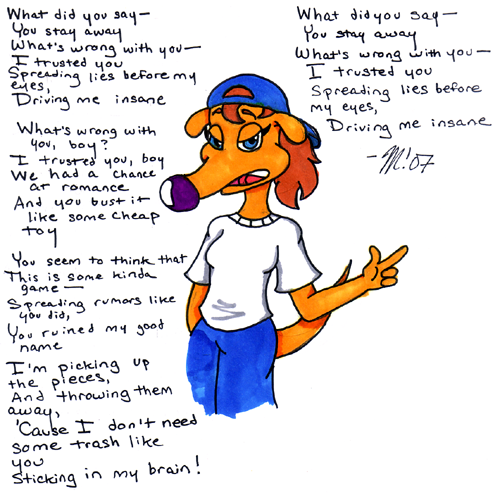 What did you say—
You stay away
What's wrong with you—
I trusted you
Spreading lies before my
eyes,
Driving me insane
What's wrong with
you, boy?
I trusted you, boy
We had a chance
at romance
And you bust it
like some cheap
toy
You seem to think that
This is some kinda
game—
Spreading rumors like
you did,
You ruined my good
name
I'm picking up
the pieces,
And throwing them
away,
'Cause I don't need
some trash like
you
Sticking in my brain!
What did you say—
You stay away
What's wrong with you—
I trusted you
Spreading lies before
my eyes,
Driving me insane
-M!07